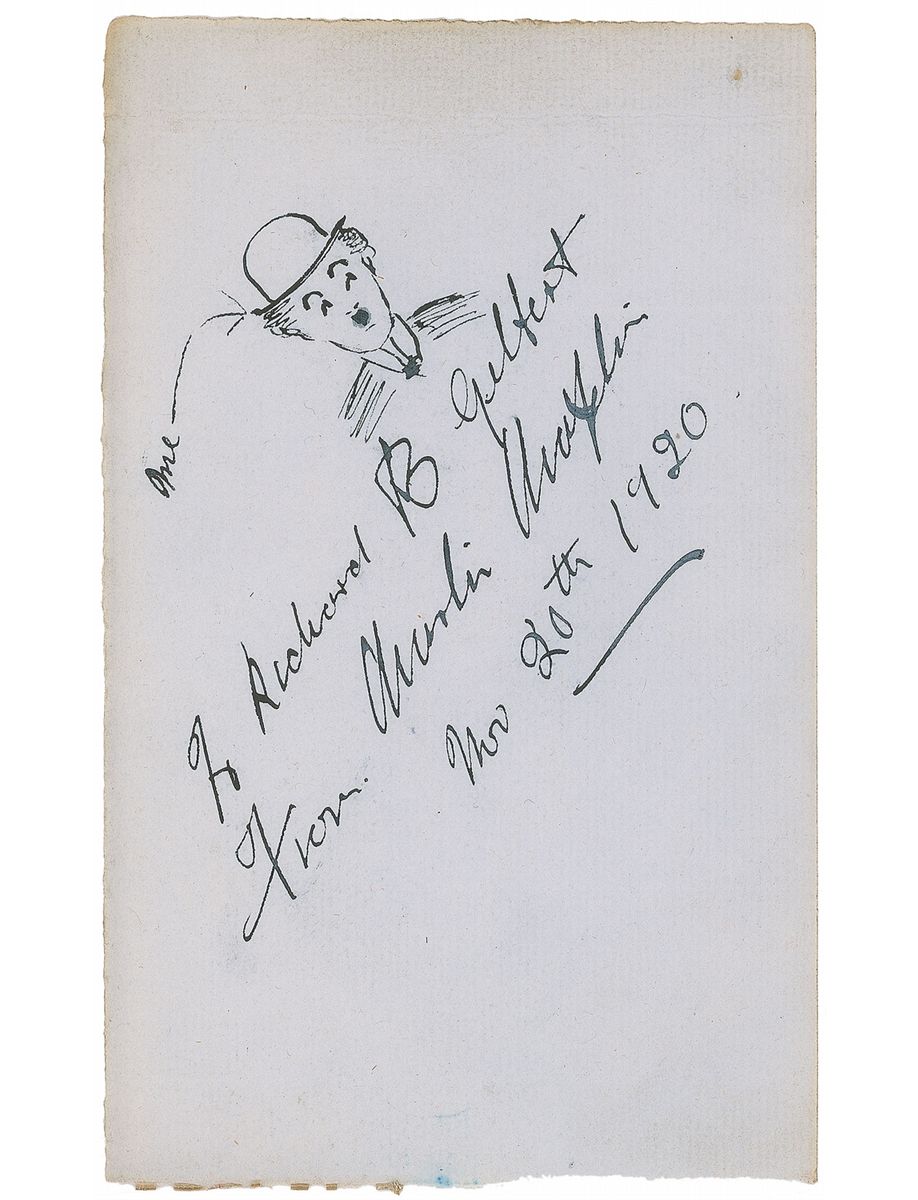 me
To Richard B Gilbert
From. Charlie Chaplin
Nov 20th 1920